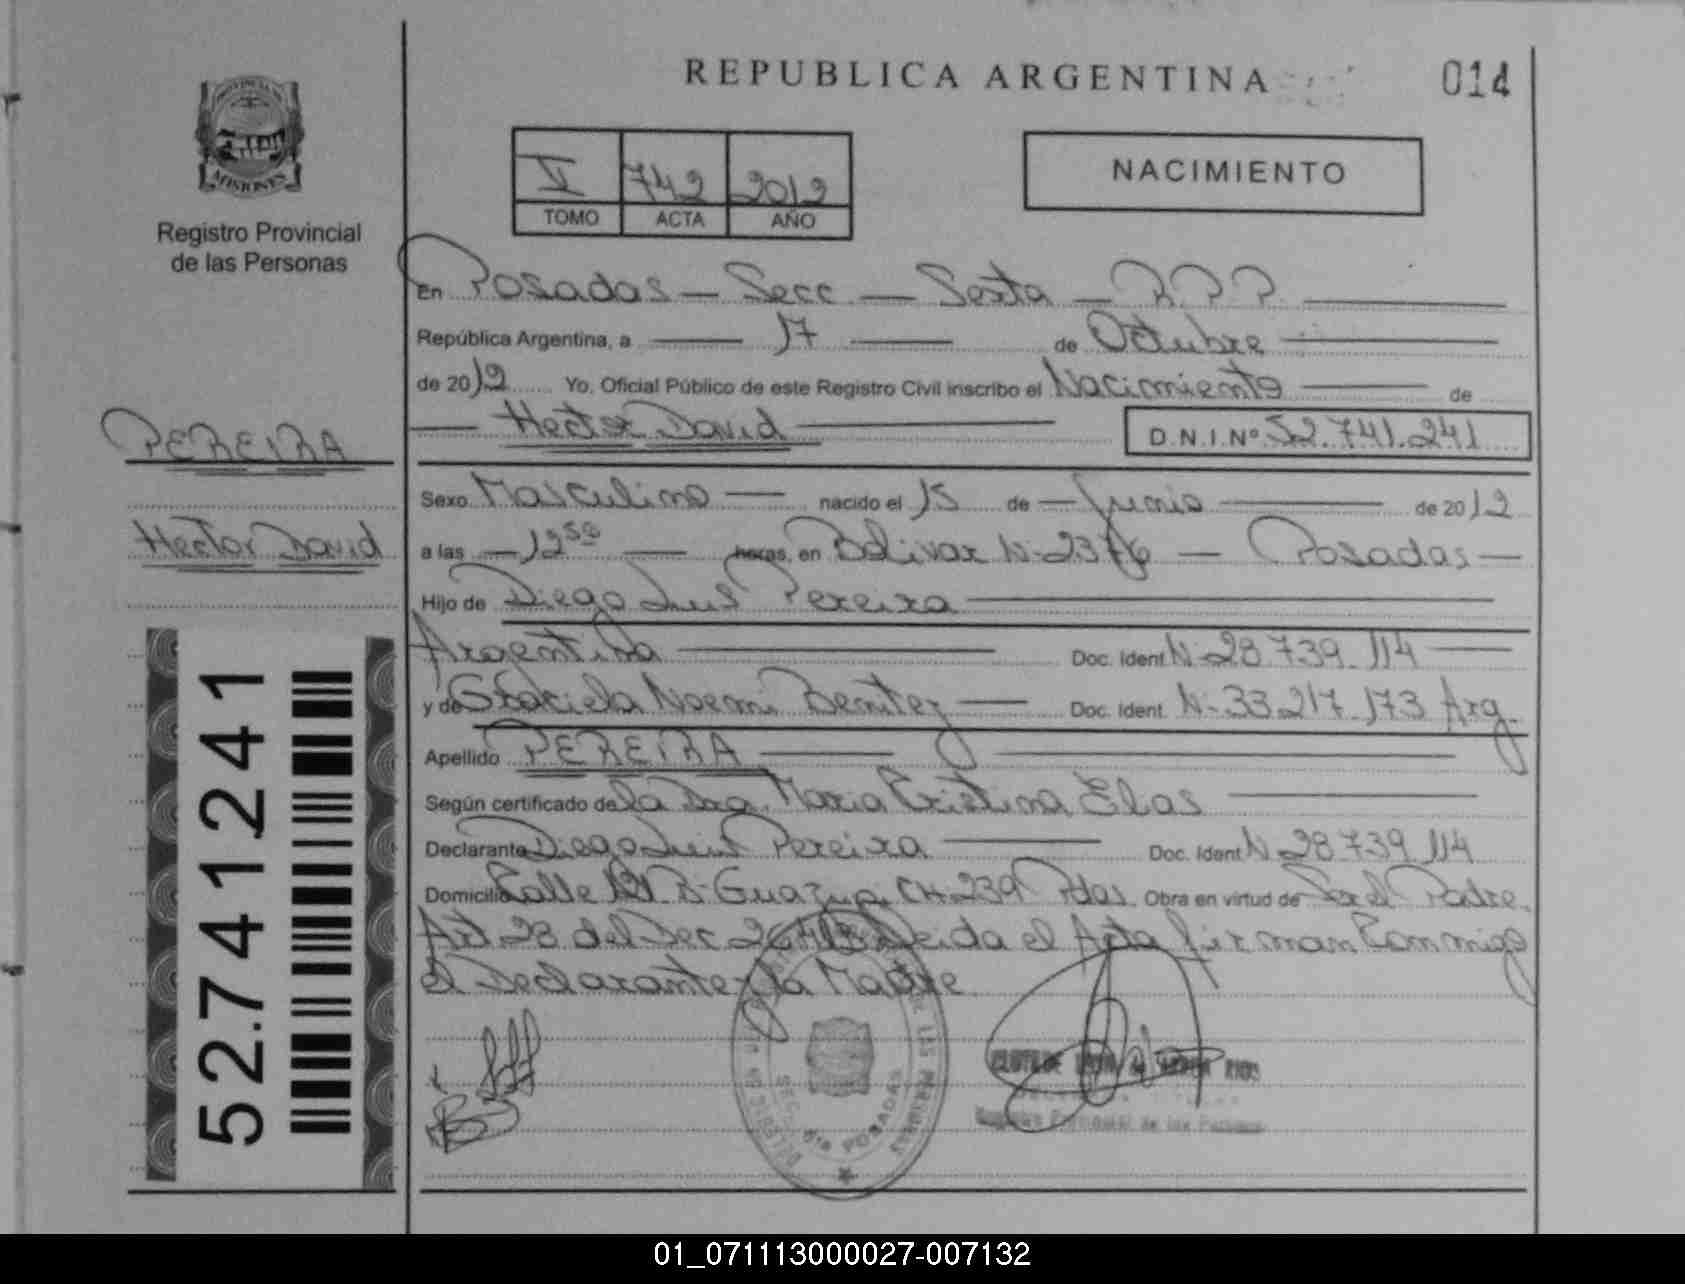 REPUBLICA ARGENTINA
014
PROVINCIA DE
MISIONES
Registro Provincial
de las Personas
V 742 2012
TOMO ACTA AÑO
NACIMIENTO
En Posadas - Secc - Sexta - R.P.P.
República Argentina, a 17 de Octubre
de 2012 Yo, Oficial Público de este Registro Civil inscribo el Nacimiento de
Hector David D.N.I. Nº 52.741.241
PEREIRA
Hector David
Sexo Masculino nacido el 15 de Junio de 2012
a las 12 50 horas, en Bolivar N- 2376 - Posadas
Hijo de Diego Luis Pereira
Argentina Doc. Ident N- 28.739.114
y de Graciela Noemi Benitez Doc. Ident. N- 33.217.173 Arg.
Apellido PEREIRA
Según certificado de la Dra. Maria Cristina Elas
Declarante Diego Luis Pereira Doc. Ident N 28.739.114
Domicilio Calle 121 B- Guazupi CH 239 Pdas. Obra en virtud de Ser el Padre.
Art. 28 del Dec Leida el Acta firman Conmigo
el Declarante y la Madre.
52.741241
SEC. 6ta POSADAS
DE LAS PERSONAS
RIOS
Registro Provincial de las Personas
01_071113000027-007132